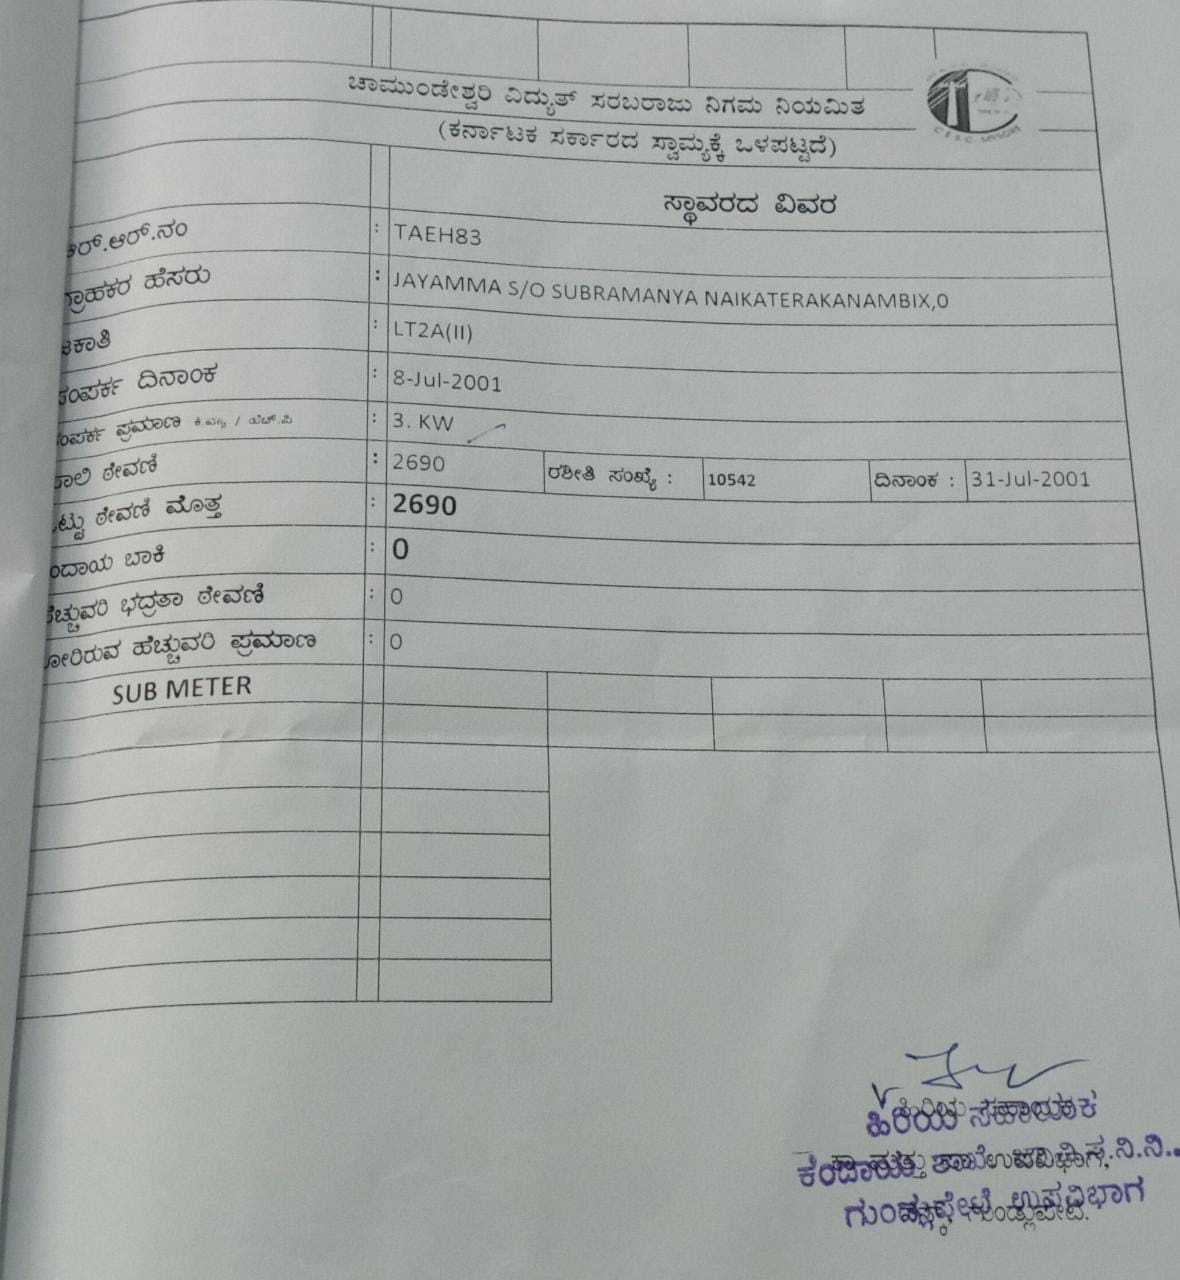 ಚಾಮುಂಡೇಶ್ವರಿ ವಿದ್ಯುತ್ ಸರಬರಾಜು ನಿಗಮ ನಿಯಮಿತ
(ಕರ್ನಾಟಕ ಸರ್ಕಾರದ ಸ್ವಾಮ್ಯಕ್ಕೆ ಒಳಪಟ್ಟಿದೆ)
C E S C MYSORE
ಸ್ಥಾವರದ ವಿವರ
ಆರ್.ಆರ್.ನಂ : TAEH83
ಗ್ರಾಹಕರ ಹೆಸರು : JAYAMMA S/O SUBRAMANYA NAIKATERAKANAMBIX,0
ಜಕಾತಿ : LT2A(II)
ಸಂಪರ್ಕ ದಿನಾಂಕ : 8-Jul-2001
ಸಂಪರ್ಕ ಪ್ರಮಾಣ ಕಿ.ವ್ಯಾ / ಹೆಚ್.ಪಿ : 3. KW
ಠೇವಣಿ : 2690 ರಶೀತಿ ಸಂಖ್ಯೆ : 10542 ದಿನಾಂಕ : 31-Jul-2001
ಒಟ್ಟು ಠೇವಣಿ ಮೊತ್ತ : 2690
ಕಂದಾಯ ಬಾಕಿ : 0
ಹೆಚ್ಚುವರಿ ಭದ್ರತಾ ಠೇವಣಿ : 0
ಕೋರಿರುವ ಹೆಚ್ಚುವರಿ ಪ್ರಮಾಣ : 0
SUB METER
ಹಿರಿಯ ಸಹಾಯಕ
ಗುಂಡ್ಲುಪೇಟೆ ಉಪವಿಭಾಗ